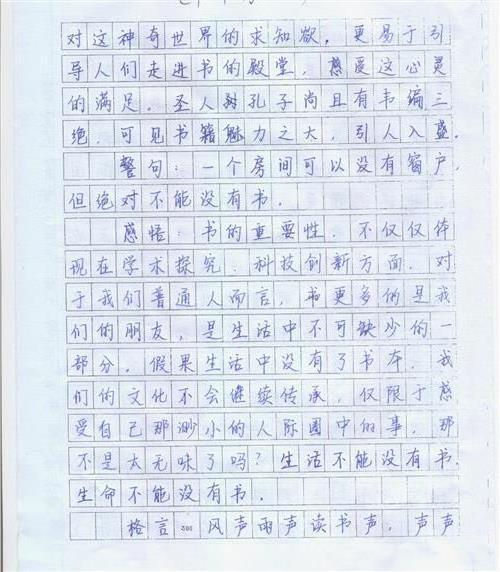 对这神奇世界的求知欲。更易于引
导人们走进书的殿堂，感爱这心灵
的满足。圣人孔子尚且有韦编三
绝，可见书籍魅力之大，引人入盛。
警句：一个房间可以没有窗户，
但绝对不能没有书。
感悟：书的重要性，不仅仅体
现在学术探究、科技创新方面。对
于我们普通人而言，书更多的是我
们的朋友，是生活中不可缺少的一
部分。假果生活中没有了书本，我
们的文化不会继续传承，仅限于感
受自己那渺小的人际圈中的事，那
不是太无味了吗？生活不能没有书，
生命不能没有书。
格言 300 风声雨声读书声，声声